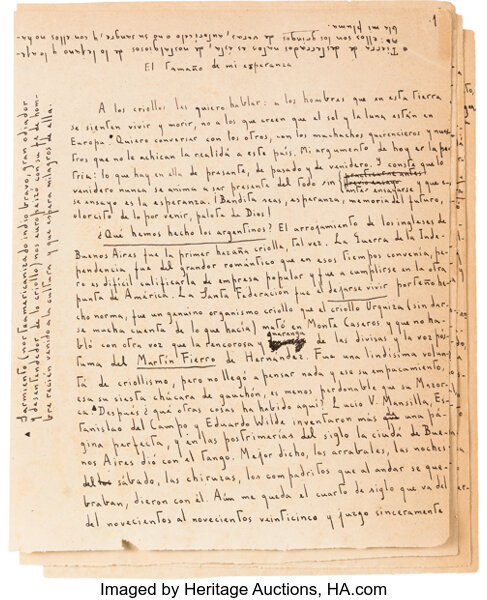 1
• Tierra de desterrados natos es ésta, de nostalgiosos de lo lejano y lo aje-
no: ellos son los gringos de veras, autorícelo o no su sangre, y con ellos no ha-
bla mi pluma.
El tamaño de mi esperanza
A los criollos les quiero hablar: a los hombres que en esta tierra
se sienten vivir y morir, no a los que creen que el sol y la luna están en
Europa. • Quiero conversar con los otros, con los muchachos querencieros y nues-
tros que no le achican la realidá a este país. Mi argumento de hoy es la pa-
tria: lo que hay en ella de presente, de pasado y de venidero. Y conste que lo
venidero nunca se anima a ser presente del todo sin antes ensayarse y que ese
ensayo es la esperanza. ¡Bendita seas, esperanza, memoria del futuro,
olorcito de lo por venir, palote de Dios!
¿Qué hemos hecho los argentinos? El arrojamiento de los ingleses de
Buenos Aires fue la primer hazaña criolla, tal vez. La Guerra de la Inde-
pendencia fue del grandor romántico que en esos tiempos convenía, pe-
ro es difícil calificarla de empresa popular y fue a cumplirse en la otra
punta de América. La Santa Federación fue el dejarse vivir porteño he-
cho norma, fue un genuino organismo criollo que el criollo Urquiza (sin dar-
se mucha cuenta de lo que hacía) mató en Monte Caseros y que no ha-
bló con otra voz que la rencorosa y guaranga de las divisas y la voz pós-
tuma del Martín Fierro de Hernández. Fue una lindísima volun-
tá de criollismo, pero no llegó a pensar nada y ese su empacamiento,
esa su siesta chúcara de gauchón, es menos perdonable que su Mazor-
ca. ▲ Después ¿qué otras cosas ha habido aquí? Lucio V. Mansilla, Es-
tanislao del Campo y Eduardo Wilde inventaron más que una pá-
gina perfecta, y en las postrimerías del siglo la ciudá de Bue-
nos Aires dió con el tango. Mejor dicho, los arrabales, las noches
del sábado, las chiruzas, los compadritos que al andar se que-
braban, dieron con él. Aún me queda el cuarto de siglo que va del
del novecientos al novecientos veinticinco y juzgo sinceramente
▲ Sarmiento (norteamericanizado indio bravo, gran odiador
y desentendedor de lo criollo) nos europeizó con su fe de hom-
bre recién venido a la cultura y que espera milagros de ella.
Imaged by Heritage Auctions, HA.com